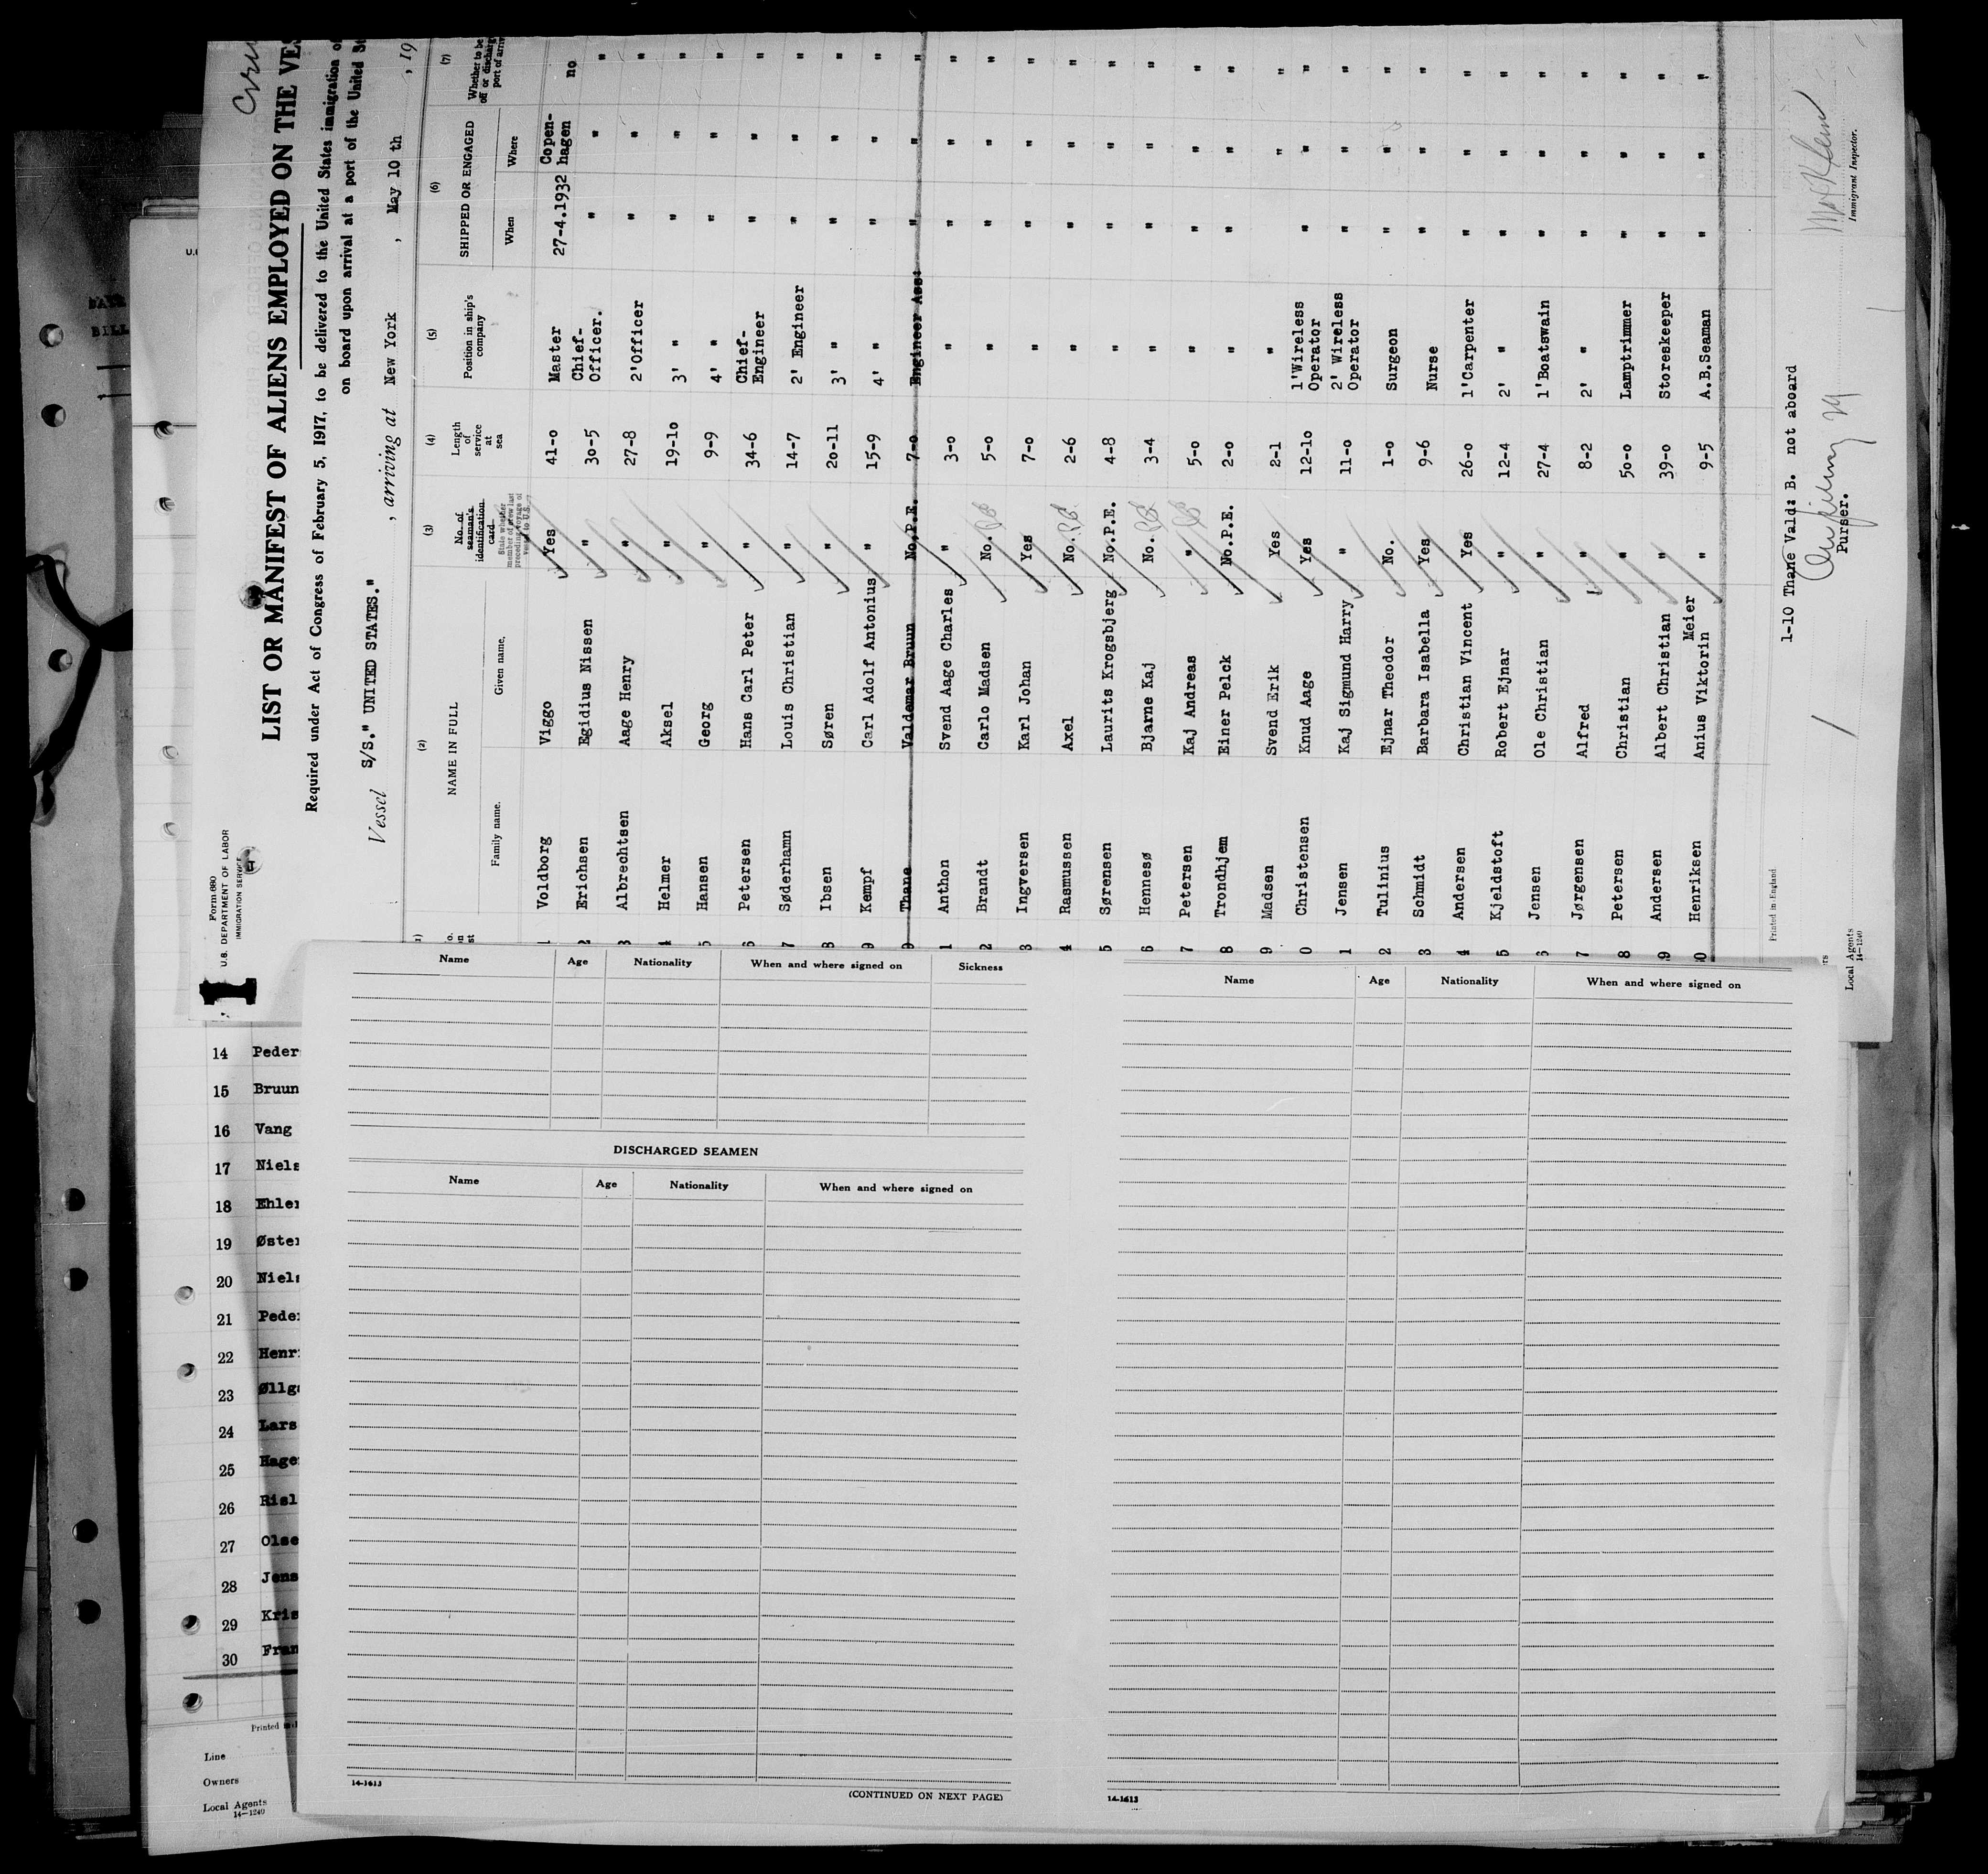 Form 680
U.S. DEPARTMENT OF LABOR
IMMIGRATION SERVICE
LIST OR MANIFEST OF ALIENS EMPLOYED ON THE VES
Required under Act of Congress of February 5, 1917, to be delivered to the United States immigration of
on board upon arrival at a port of the United St
Vessel S/S." UNITED STATES." , arriving at New York , May 10 th , 19
(2) (3) (4) (5) (6) (7)
NAME IN FULL
Family name. Given name.
No. of seaman's identification card
State whether member of crew last preceding voyage of vessel to U.S.
Length of service at sea
Position in ship's company
SHIPPED OR ENGAGED
When Where
Whether to be off or discharg port of arriv
1 Voldborg Viggo Yes 41-0 Master 27-4.1932 Copen-hagen no
2 Erichsen Egidius Nissen " 30-5 Chief-Officer. " " "
3 Albrechtsen Aage Henry " 27-8 2'Officer " " "
4 Helmer Aksel " 19-10 3' " " " "
5 Hansen Georg " 9-9 4' " " " "
6 Petersen Hans Carl Peter " 34-6 Chief-Engineer " " "
7 Søderhamn Louis Christian " 14-7 2' Engineer " " "
8 Ibsen Søren " 20-11 3' " " " "
9 Kempf Carl Adolf Antonius " 15-9 4' " " " "
Thane Valdemar Bruun No.P.E. 7-0 Engineer Ass: " " "
1 Anthon Svend Aage Charles " 3-0 " " " "
2 Brandt Carlo Madsen No. 5-0 " " " "
3 Ingversen Karl Johan Yes 7-0 " " " "
4 Rasmussen Axel No. 2-6 " " " "
5 Sørensen Laurits Krogsbjerg No.P.E. 4-8 " " " "
6 Hennesø Bjarne Kaj No. 3-4 " " " "
7 Petersen Kaj Andreas " 5-0 " " " "
8 Trondhjem Einer Pelck No.P.E. 2-0 " " " "
9 Madsen Svend Erik Yes 2-1 " " "
0 Christensen Knud Aage Yes 12-10 1'Wireless Operator " " "
1 Jensen Kaj Sigmund Harry " 11-0 2' Wireless Operator " " "
2 Tulinius Ejnar Theodor No. 1-0 Surgeon " " "
3 Schmidt Barbara Isabella Yes 9-6 Nurse " " "
4 Andersen Christian Vincent Yes 26-0 1'Carpenter " " "
5 Kjeldstoft Robert Ejnar " 12-4 2' " " " "
6 Jensen Ole Christian " 27-4 1'Boatswain " " "
7 Jørgensen Alfred " 8-2 2' " " " "
8 Petersen Christian " 50-0 Lamptrimmer " " "
9 Andersen Albert Christian " 39-0 Storeskeeper " " "
0 Henriksen Anius Viktorin Meier " 9-5 A.B.Seaman " " "
Printed in England
1-10 Thane Vald: B. not aboard
Purser.
Immigrant Inspector.
Local Agents
14-1240
14 Peder
15 Bruun
16 Vang
17 Niels
18 Ehler
19 Øster
20 Niels
21 Peder
22 Henr
23 Øllg
24 Lars
25 Hage
26 Risl
27 Olse
28 Jens
29 Kris
30 Fran
Printed
Line
Owners
Local Agents
14-1240
Name Age Nationality When and where signed on Sickness
DISCHARGED SEAMEN
Name Age Nationality When and where signed on
14-1613
(CONTINUED ON NEXT PAGE)
Name Age Nationality When and where signed on
14-1613